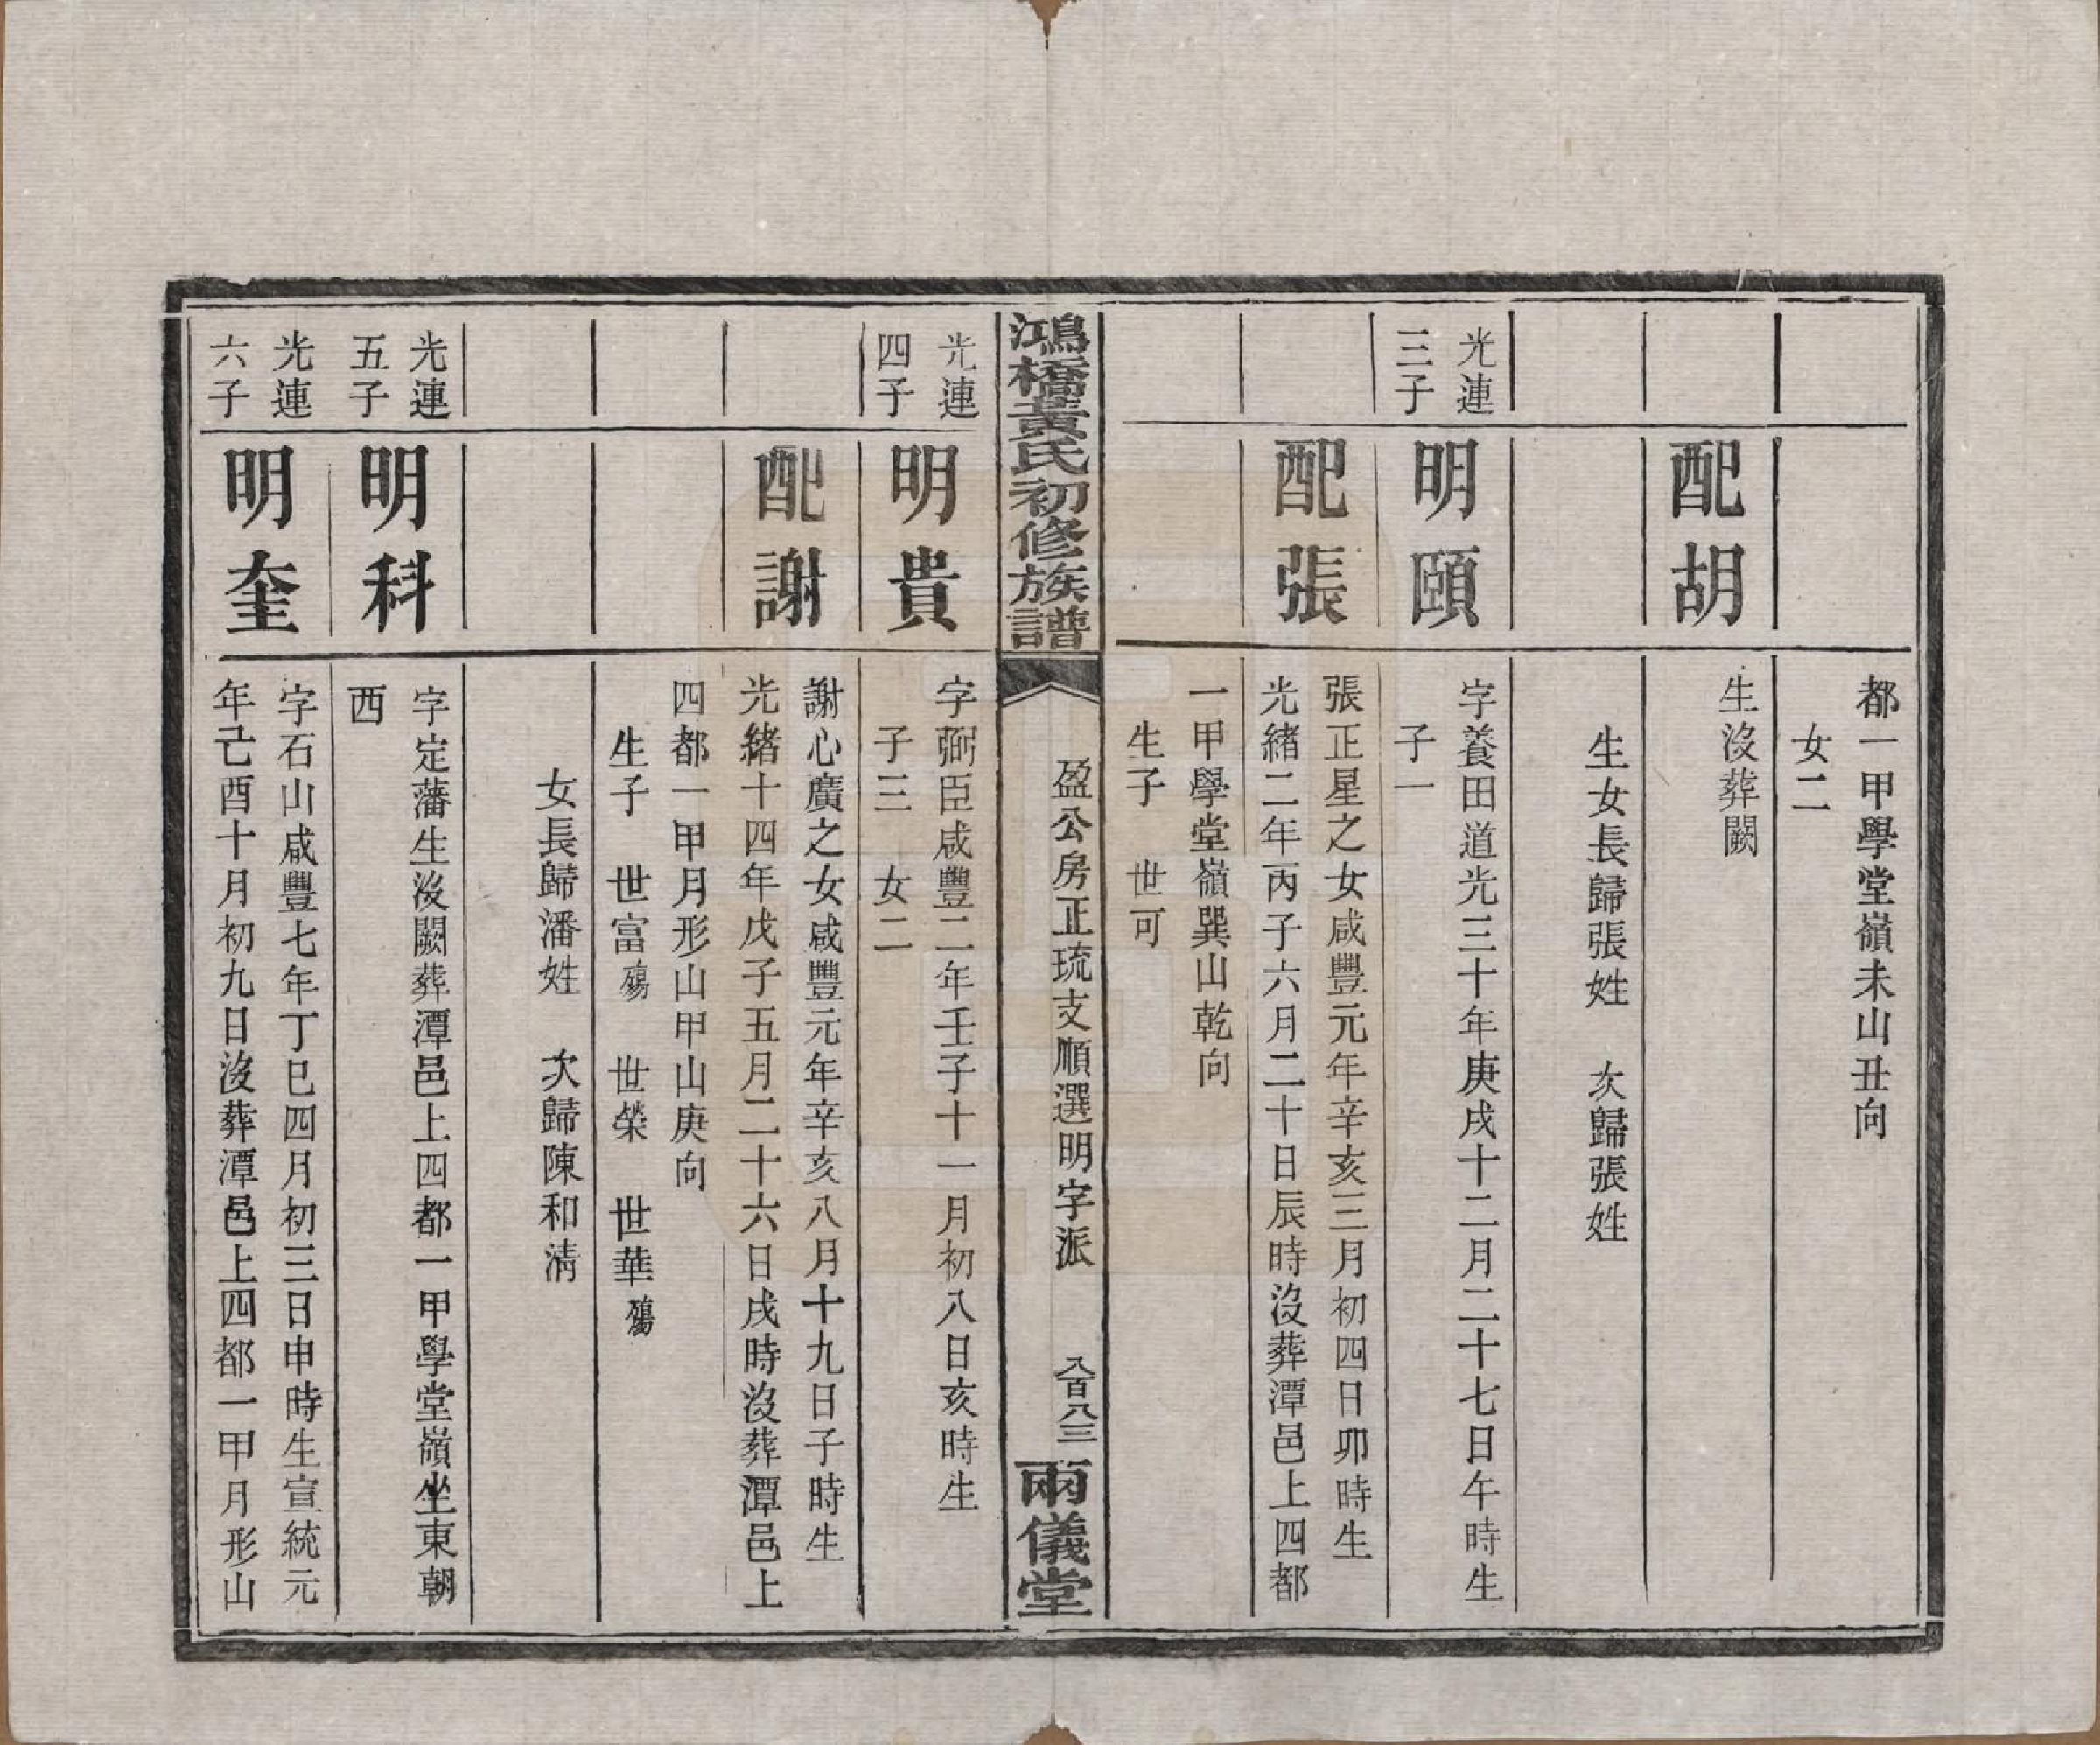 都一甲學堂嶺未山丑向
女二
配胡
生沒葬闕
生女長歸張姓　次歸張姓
光連
三子
明頤
字養田道光三十年庚戌十二月二十七日午時生
子一
配張
張正星之女咸豐元年辛亥三月初四日卯時生
光緒二年丙子六月二十日辰時沒葬潭邑上四都
一甲學堂嶺巽山乾向
生子　世可
鴻橋黃氏初修族譜
盈公房正琉支順選明字派
八百八三
兩儀堂
光連
四子
明貴
字弼臣咸豐二年壬子十一月初八日亥時生
子三　女二
配謝
謝心廣之女咸豐元年辛亥八月十九日子時生
光緒十四年戊子五月二十六日戌時沒葬潭邑上
四都一甲月形山甲山庚向
生子　世富殤　世榮　世華殤
女長歸潘姓　次歸陳和清
光連
五子
明科
字定藩生沒闕葬潭邑上四都一甲學堂嶺坐東朝
西
光連
六子
明奎
字石山咸豐七年丁巳四月初三日申時生宣統元
年己酉十月初九日沒葬潭邑上四都一甲月形山